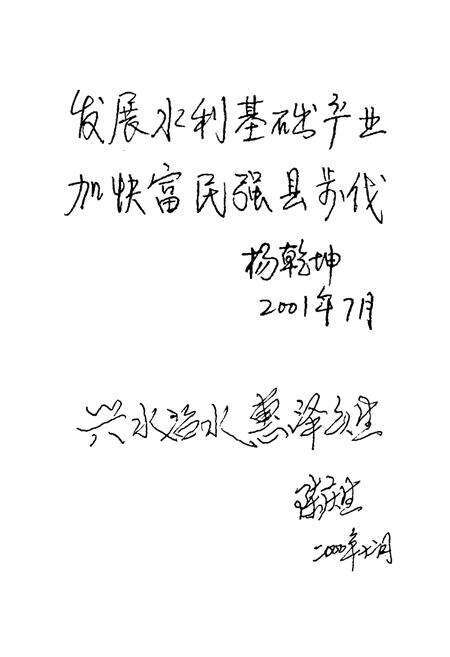 发展水利基础产业
加快富民强县步伐
杨乾坤
2001年7月
兴水治水 惠泽众生
庆生
二000年七月